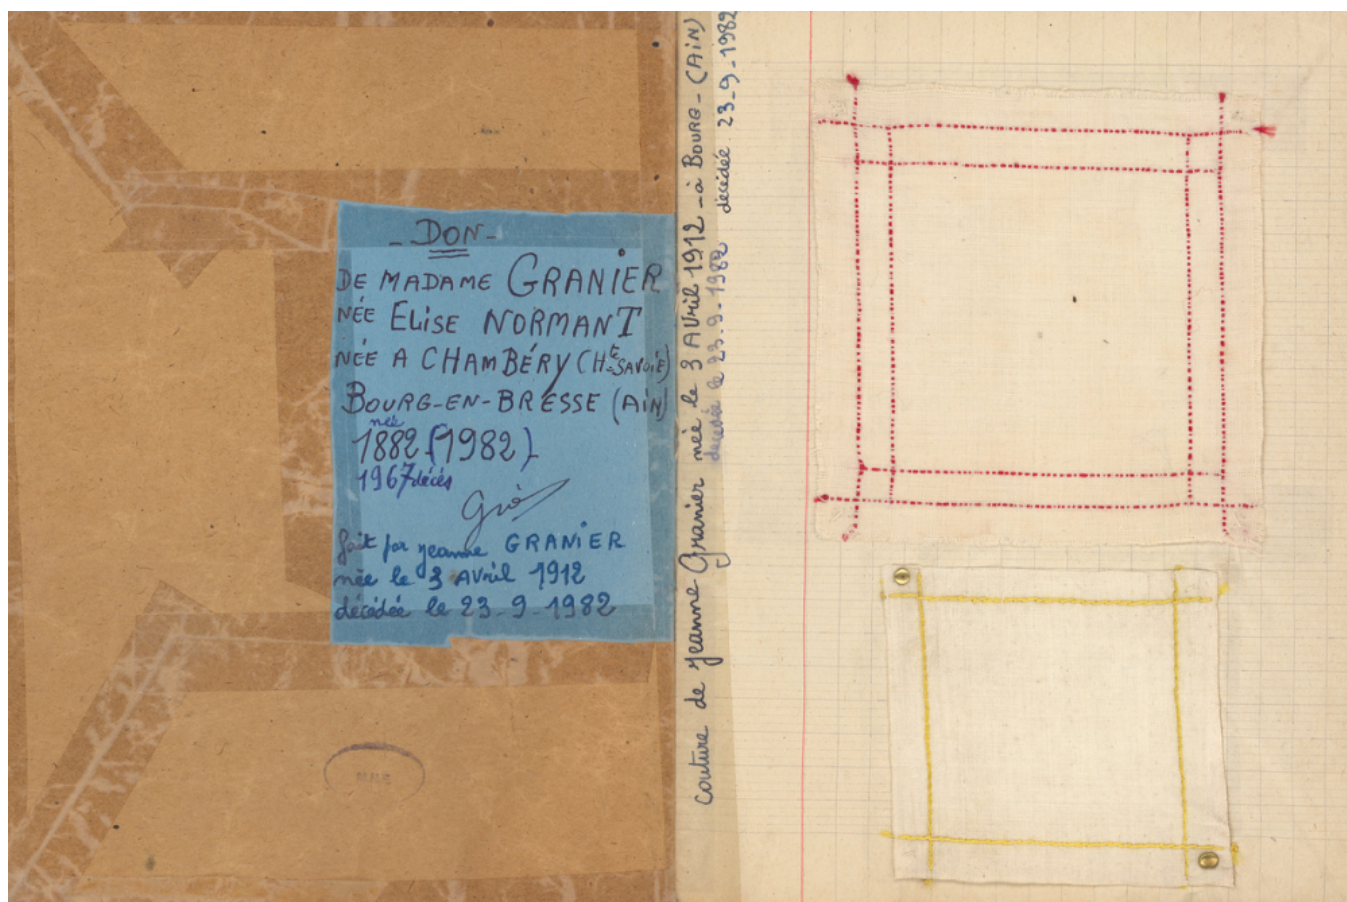 - DON -
DE MADAME GRANIER
NÉE ELiSE NORMANT
NÉE A CHAMBÉRY (Hte SAVOiE)
BOURG-EN-BRESSE (AiN)
née
1882 (1982)
1967 décès
fait par jeanne GRANIER
née le 3 AVril 1912
décédée le 23-9-1982
couture de jeanne Granier née le 3 AVril 1912 - à BOURG - (AiN)
décédée le 23-9-1982 décédée 23-9-1982